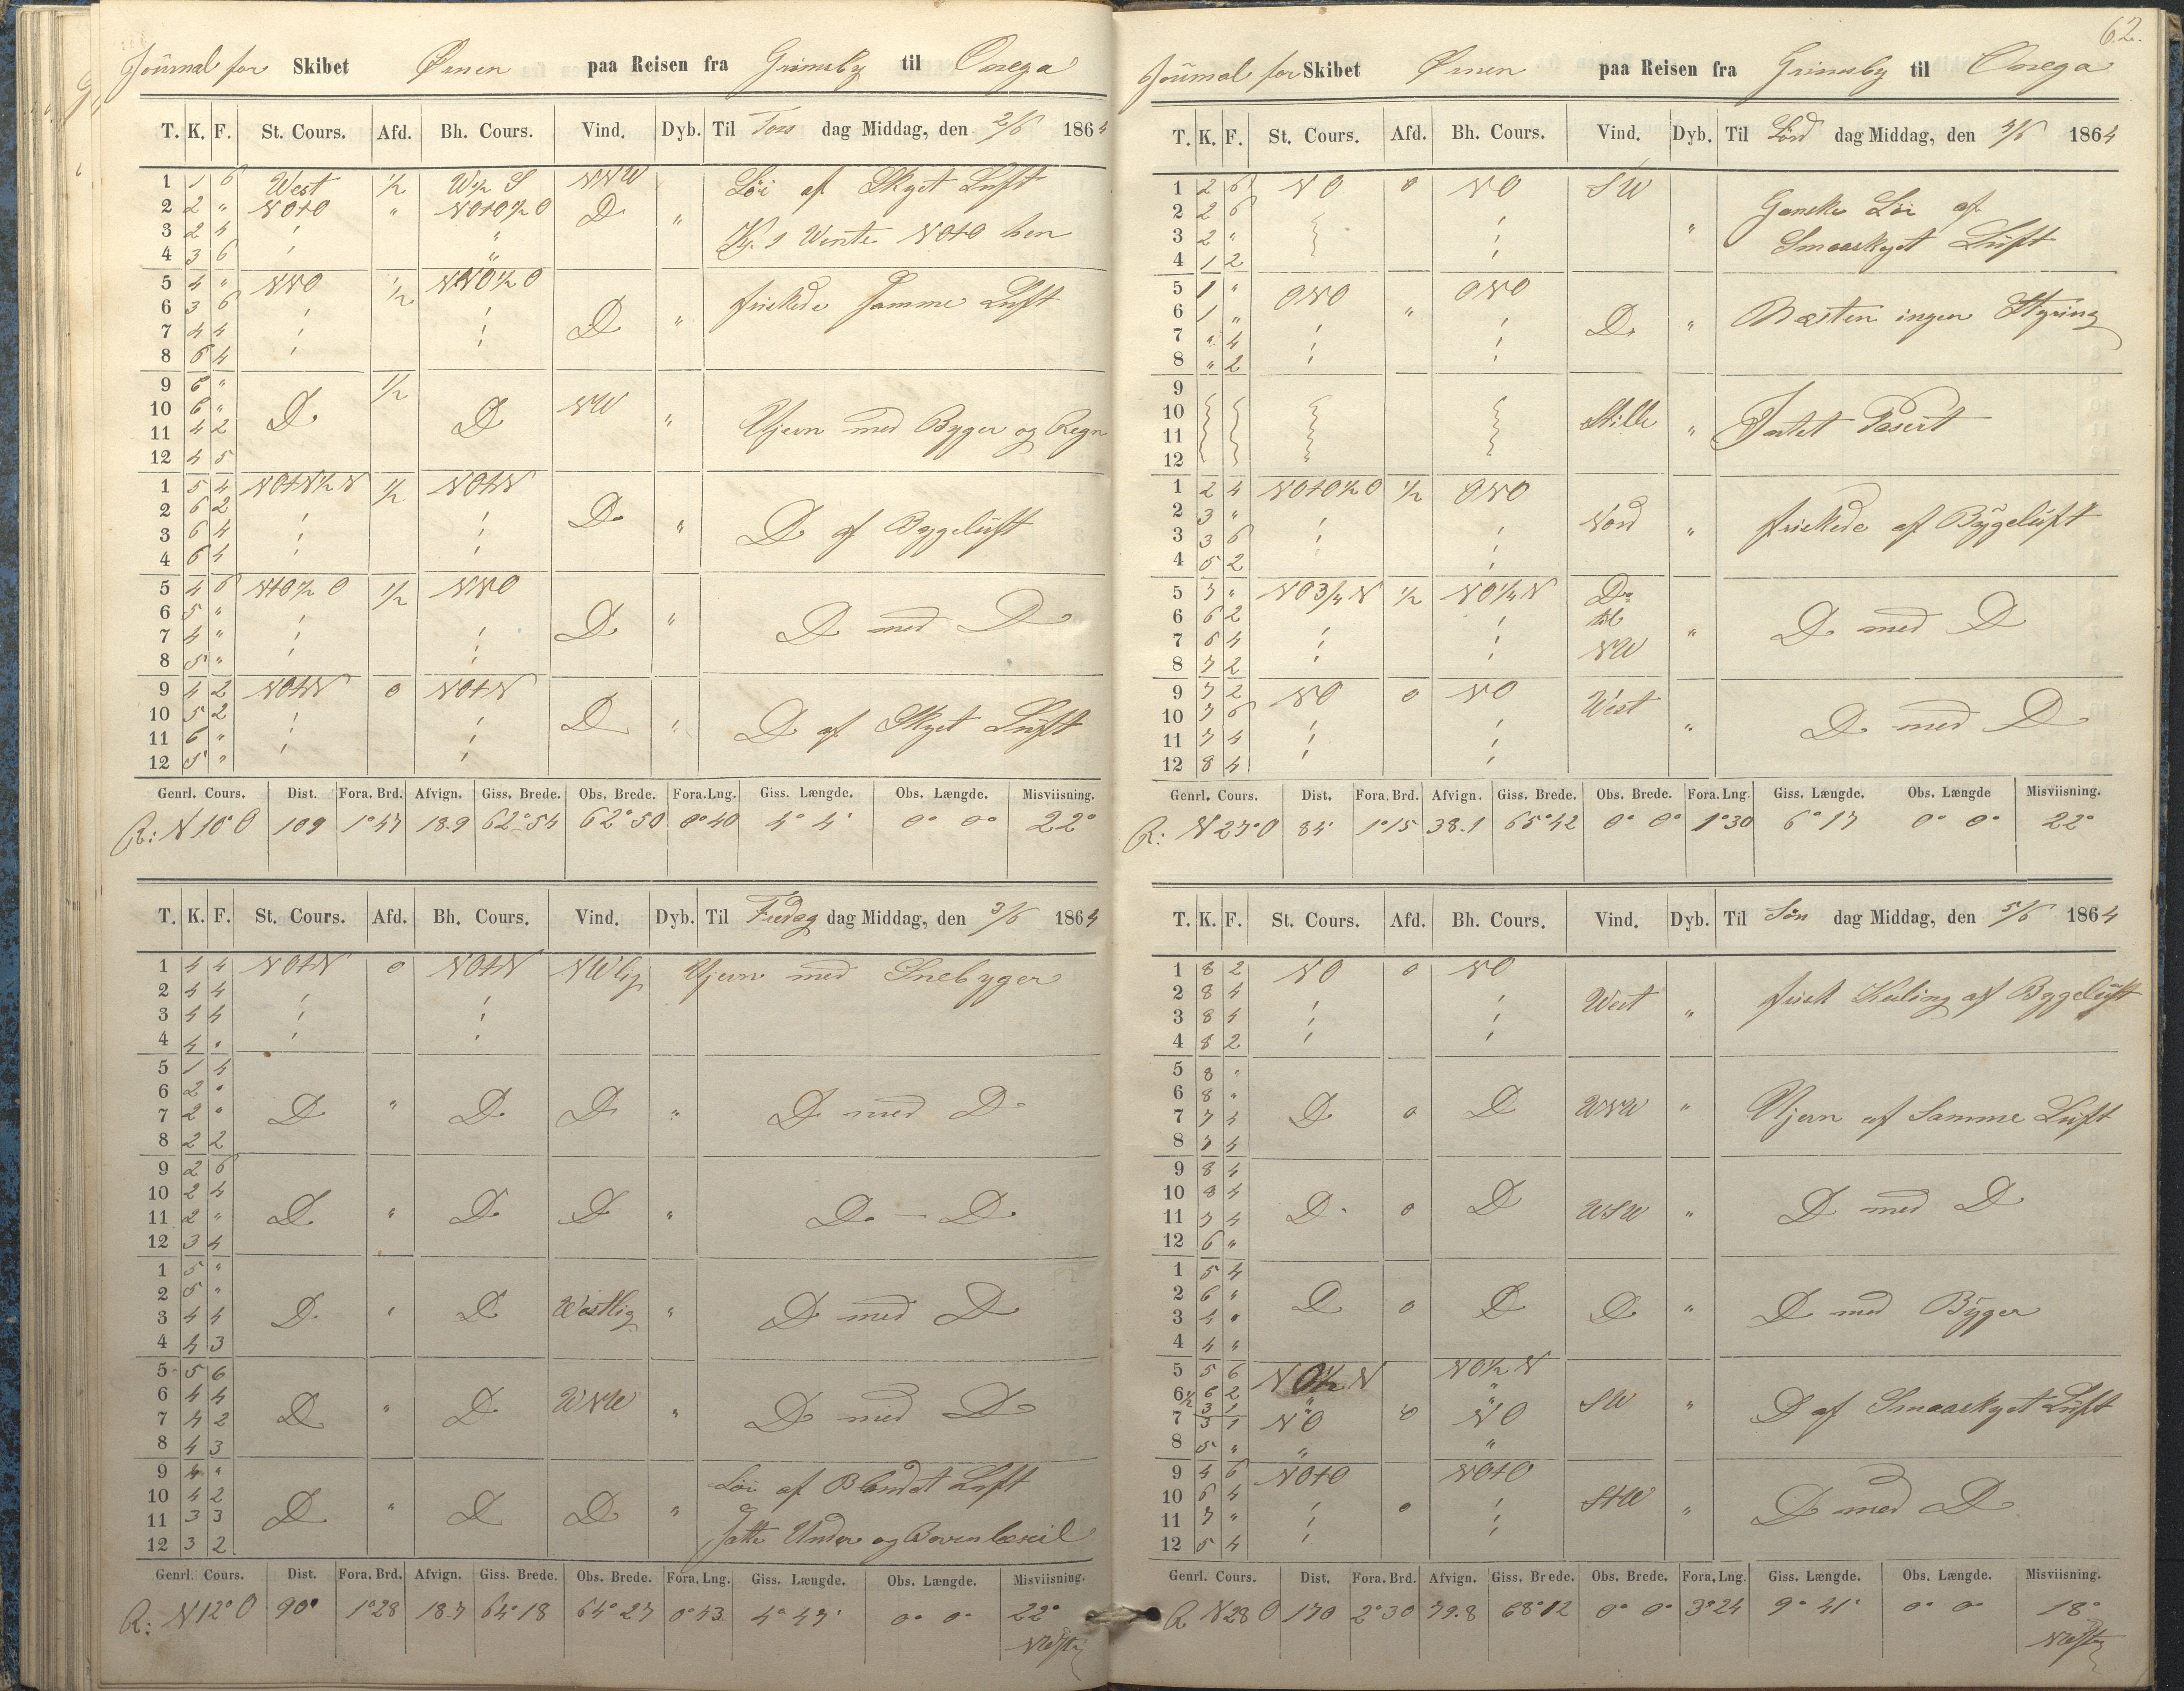 Journal for Skibet Ørnen paa Reisen fra Grimsby til Onega
T. K. F. St. Cours. Afd. Bh. Cours. Vind. Dyb. Til Tors dag Middag, den 2/6 1864
1 1 6 West ½ W½ S NNW Löi af Skyet Luft
2 2 " NOtO " NOtO½O D "
3 2 4 Kl. 1 Vente NOtO hen
4 3 6
5 4 " NNO ½ NNO½O
6 3 6 friskede Samme Luft
7 4 4 D "
8 6 4
9 6 " ½
10 6 " D D NW "
11 4 2 Ujevn med Byger og Regn
12 4 5
1 5 4 NOtN½N ½ NOtN
2 6 2 D "
3 6 4 D af Bygeluft
4 6 4
5 4 6 NtO½O ½ NNO
6 5 " D "
7 4 " D med D
8 5 "
9 4 2 NOtN 0 NOtN
10 5 2 D "
11 6 " D af Skyet Luft
12 5 "
Genrl. Cours. Dist. Fora. Brd. Afvign. Giss. Brede. Obs. Brede. Fora.Lng. Giss. Længde. Obs. Længde. Misviisning.
R: N 10° O 109 1°47 18.9 62°54 62°50 0°40 4° 4' 0° 0° 22°
T. K. F. St. Cours. Afd. Bh. Cours. Vind. Dyb. Til Fredag dag Middag, den 3/6 1864
1 4 4 NOtN 0 NOtN NWlig Ujevn med Snebyger
2 4 4
3 4 4
4 4 "
5 1 4
6 2 "
7 2 " D " D D " D med D
8 2 2
9 2 6
10 2 4
11 2 " D " D D " D — D
12 3 4
1 5 "
2 5 "
3 4 4 D " D Westlig " D med D
4 4 3
5 5 6
6 4 4 D " D WNW " D med D
7 4 2
8 4 3
9 4 " Löi af Blandet Luft
10 4 2
11 3 3 D " D D "
12 3 2 Satte Under og Bovenlæseil
Genrl. Cours. Dist. Fora. Brd. Afvign. Giss. Brede. Obs. Brede. Fora. Lng. Giss. Længde. Obs. Længde. Misviisning.
R: N 12° O 90° 1°28 18.7 64°18 64°27 0°43 4°47' 0° 0° 22°
62.
Journal for Skibet Ørnen paa Reisen fra Grimsby til Onega
T. K. F. St. Cours. Afd. Bh. Cours. Vind. Dyb. Til Lörd dag Middag, den 4/6 1864
1 2 6 NO 0 NO SW
2 2 6 Ganske Löi af
3 2 " "
4 1 2 Smaaskyet Luft
5 1 " ONO ONO
6 1 " " D " Næsten ingen Styring
7 " 4
8 " 2
9
10 Stille
11 " Intet Paserit
12
1 2 4 NOtO½O ½ ONO
2 3 " Nord " friskede af Bygeluft
3 3 6
4 5 2
5 7 " NO¾N ½ NO¼N D
6 6 2 til
7 6 4 NW " D med D
8 7 2
9 7 2 NO 0 NO West
10 7 6
11 7 4 " D med D
12 8 4
Genrl. Cours. Dist. Fora. Brd. Afvign. Giss. Brede. Obs. Brede. Fora. Lng. Giss. Længde. Obs. Længde Misviisning.
R: N 27° O 84' 1°15 38.1 65°42 0° 0° 1°30 6°17 0° 0° 22°
T. K. F. St. Cours. Afd. Bh. Cours. Vind. Dyb. Til Søn dag Middag, den 5/6 1864
1 8 2 NO 0 NO
2 8 4 West " frisk Kuling af Bygeluft
3 8 4
4 8 2
5 8 "
6 8 "
7 7 4 D 0 D WNW " Ujevn af Samme Luft
8 7 4
9 8 4
10 8 4
11 7 4 D 0 D WSW " D med D
12 6 "
1 5 4
2 6 " D 0 D D " D med Byger
3 4 "
4 4 "
5 5 6 NO½N NO½N
6½ 6 2 " "
3 1 SW " D af Smaaskyet Luft
7 3 1 NO 0 NO
8 5 " " "
9 4 6 NOtO NOtO
10 6 4 StW
11 7 " 0 " D med D
12 5 4
Genrl. Cours. Dist. Fora. Brd. Afvign. Giss. Brede. Obs. Brede. Fora. Lng. Giss. Længde. Obs. Længde. Misviisning.
R N 28 O 170 2°30 79.8 68°12 0° 0° 3°24 9° 41' 0° 0° 18°